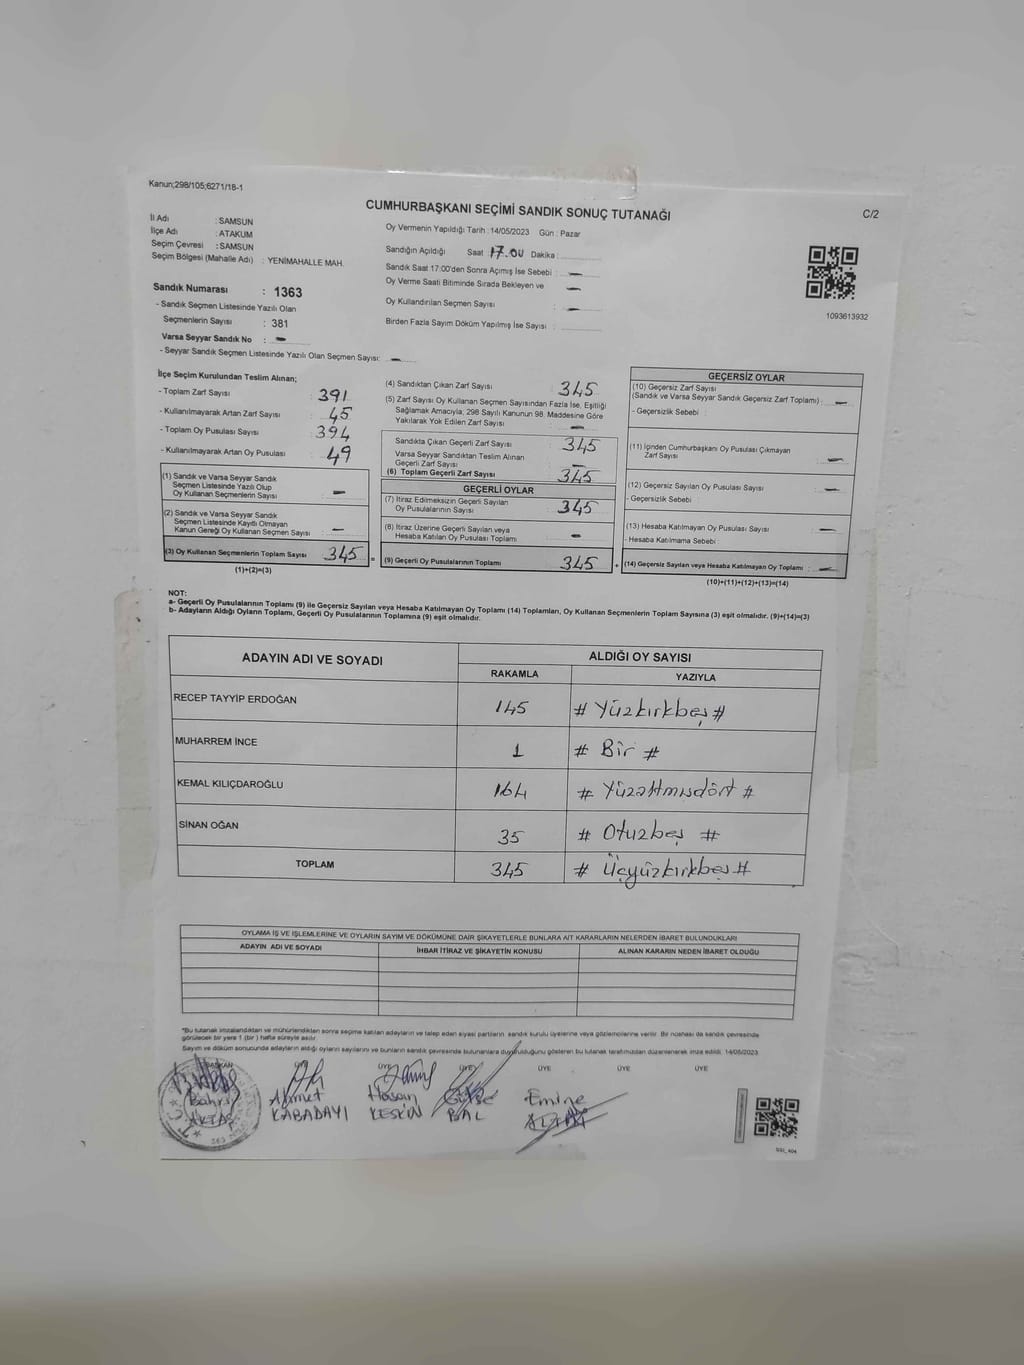 Kanun;298/105;6271/18-1
CUMHURBAŞKANI SEÇİMİ SANDIK SONUÇ TUTANAĞI
C/2
İl Adı : SAMSUN
İlçe Adı : ATAKUM
Seçim Çevresi : SAMSUN
Seçim Bölgesi (Mahalle Adı) : YENİMAHALLE MAH.
Sandık Numarası : 1363
- Sandık Seçmen Listesinde Yazılı Olan
Seçmenlerin Sayısı : 381
Varsa Seyyar Sandık No : -
- Seyyar Sandık Seçmen Listesinde Yazılı Olan Seçmen Sayısı: -
Oy Vermenin Yapıldığı Tarih : 14/05/2023 Gün : Pazar
Sandığın Açıldığı Saat 17.00 Dakika :
Sandık Saat 17:00'den Sonra Açımış İse Sebebi : -
Oy Verme Saati Bitiminde Sırada Bekleyen ve -
Oy Kullandırılan Seçmen Sayısı : -
Birden Fazla Sayım Döküm Yapılmış İse Sayısı :
1093613932
İlçe Seçim Kurulundan Teslim Alınan;
- Toplam Zarf Sayısı : 391
- Kullanılmayarak Artan Zarf Sayısı : 45
- Toplam Oy Pusulası Sayısı : 394
- Kullanılmayarak Artan Oy Pusulası : 49
(1) Sandık ve Varsa Seyyar Sandık
Seçmen Listesinde Yazılı Olup
Oy Kullanan Seçmenlerin Sayısı : -
(2) Sandık ve Varsa Seyyar Sandık
Seçmen Listesinde Kayıtlı Olmayan
Kanun Gereği Oy Kullanan Seçmen Sayısı : -
(3) Oy Kullanan Seçmenlerin Toplam Sayısı : 345 =
(1)+(2)=(3)
(4) Sandıktan Çıkan Zarf Sayısı : 345
(5) Zarf Sayısı Oy Kullanan Seçmen Sayısından Fazla İse, Eşitliği
Sağlamak Amacıyla; 298 Sayılı Kanunun 98. Maddesine Göre
Yakılarak Yok Edilen Zarf Sayısı : -
Sandıkta Çıkan Geçerli Zarf Sayısı : 345
Varsa Seyyar Sandıktan Teslim Alınan
Geçerli Zarf Sayısı : -
(6) Toplam Geçerli Zarf Sayısı : 345
GEÇERLİ OYLAR
(7) İtiraz Edilmeksizin Geçerli Sayılan
Oy Pusulalarının Sayısı : 345
(8) İtiraz Üzerine Geçerli Sayılan veya
Hesaba Katılan Oy Pusulası Toplamı : -
(9) Geçerli Oy Pusulalarının Toplamı : 345 +
GEÇERSİZ OYLAR
(10) Geçersiz Zarf Sayısı
(Sandık ve Varsa Seyyar Sandık Geçersiz Zarf Toplamı) : -
- Geçersizlik Sebebi :
(11) İçinden Cumhurbaşkanı Oy Pusulası Çıkmayan
Zarf Sayısı : -
(12) Geçersiz Sayılan Oy Pusulası Sayısı : -
- Geçersizlik Sebebi :
(13) Hesaba Katılmayan Oy Pusulası Sayısı : -
- Hesaba Katılmama Sebebi :
(14) Geçersiz Sayılan veya Hesaba Katılmayan Oy Toplamı : -
(10)+(11)+(12)+(13)=(14)
NOT:
a- Geçerli Oy Pusulalarının Toplamı (9) ile Geçersiz Sayılan veya Hesaba Katılmayan Oy Toplamı (14) Toplamları, Oy Kullanan Seçmenlerin Toplam Sayısına (3) eşit olmalıdır. (9)+(14)=(3)
b- Adayların Aldığı Oyların Toplamı, Geçerli Oy Pusulalarının Toplamına (9) eşit olmalıdır.
ADAYIN ADI VE SOYADI
ALDIĞI OY SAYISI
RAKAMLA YAZIYLA
RECEP TAYYİP ERDOĞAN 145 # Yüzkırkbeş #
MUHARREM İNCE 1 # Bir #
KEMAL KILIÇDAROĞLU 164 # Yüzaltmışdört #
SİNAN OĞAN 35 # Otuzbeş #
TOPLAM 345 # Üçyüzkırkbeş #
OYLAMA İŞ VE İŞLEMLERİNE VE OYLARIN SAYIM VE DÖKÜMÜNE DAİR ŞİKAYETLERLE BUNLARA AİT KARARLARIN NELERDEN İBARET BULUNDUKLARI
ADAYIN ADI VE SOYADI İHBAR İTİRAZ VE ŞİKAYETİN KONUSU ALINAN KARARIN NEDEN İBARET OLDUĞU
*Bu tutanak imzalandıktan ve mühürlendikten sonra seçime katılan adayların ve talep eden siyasi partilerin sandık kurulu üyelerine veya gözlemcilerine verilir. Bir nüshası da sandık çevresinde
görülecek bir yere 1 (bir) hafta süreyle asılır.
Sayım ve döküm sonucunda adayların aldığı oyların sayılarını ve bunların sandık çevresinde bulunanlara duyrulduğunu gösteren bu tutanak tarafımızdan düzenlenerek imza edildi. 14/05/2023
BAŞKAN ÜYE ÜYE ÜYE ÜYE ÜYE ÜYE
Bahri Ahmet Hasan Emine
AKTAŞ KABADAYI KESKİN BAL